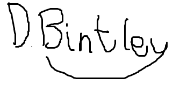 D Bintley